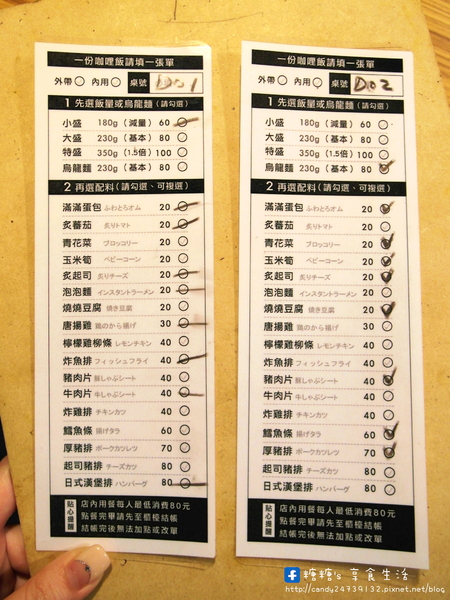 一份咖哩飯請填一張單
外帶○ 內用○ 桌號 D01
1 先選飯量或烏龍麵(請勾選)
小盛 180g (減量) 60
大盛 230g (基本) 80
特盛 350g (1.5倍) 100
烏龍麵 230g (基本) 80
2 再選配料(請勾選、可複選)
滿滿蛋包 ふわとろオム 20
炙蕃茄 炙りトマト 20
青花菜 ブロッコリー 20
玉米筍 ベビーコーン 20
炙起司 炙りチーズ 20
泡泡麵 インスタントラーメン 20
燒燒豆腐 焼き豆腐 20
唐揚雞 鶏のから揚げ 30
檸檬雞柳條 レモンチキン 40
炸魚排 フィッシュフライ 40
豬肉片 豚しゃぶシート 40
牛肉片 牛しゃぶシート 40
炸雞排 チキンカツ 40
鱈魚條 揚げタラ 60
厚豬排 ポークカツレツ 70
起司豬排 チーズカツ 80
日式漢堡排 ハンバーグ 80
貼心提醒
店內用餐每人最低消費80元
點餐完畢請先至櫃檯結帳
結帳完後無法加點或改單
一份咖哩飯請填一張單
外帶○ 內用○ 桌號 D02
1 先選飯量或烏龍麵(請勾選)
小盛 180g (減量) 60
大盛 230g (基本) 80
特盛 350g (1.5倍) 100
烏龍麵 230g (基本) 80
2 再選配料(請勾選、可複選)
滿滿蛋包 ふわとろオム 20
炙蕃茄 炙りトマト 20
青花菜 ブロッコリー 20
玉米筍 ベビーコーン 20
炙起司 炙りチーズ 20
泡泡麵 インスタントラーメン 20
燒燒豆腐 焼き豆腐 20
唐揚雞 鶏のから揚げ 30
檸檬雞柳條 レモンチキン 40
炸魚排 フィッシュフライ 40
豬肉片 豚しゃぶシート 40
牛肉片 牛しゃぶシート 40
炸雞排 チキンカツ 40
鱈魚條 揚げタラ 60
厚豬排 ポークカツレツ 70
起司豬排 チーズカツ 80
日式漢堡排 ハンバーグ 80
貼心提醒
店內用餐每人最低消費80元
點餐完畢請先至櫃檯結帳
結帳完後無法加點或改單
糖糖's 享食生活
http://candy24739132.pixnet.net/blog